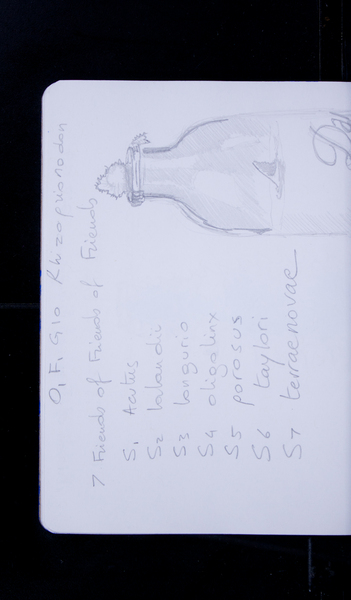 O, F, G10 Rhizoprionodon
7 Friends of Friends of Friends
S1 Acutus
S2 lalandii
S3 longurio
S4 oligolinx
S5 porosus
S6 taylori
S7 terraenovae